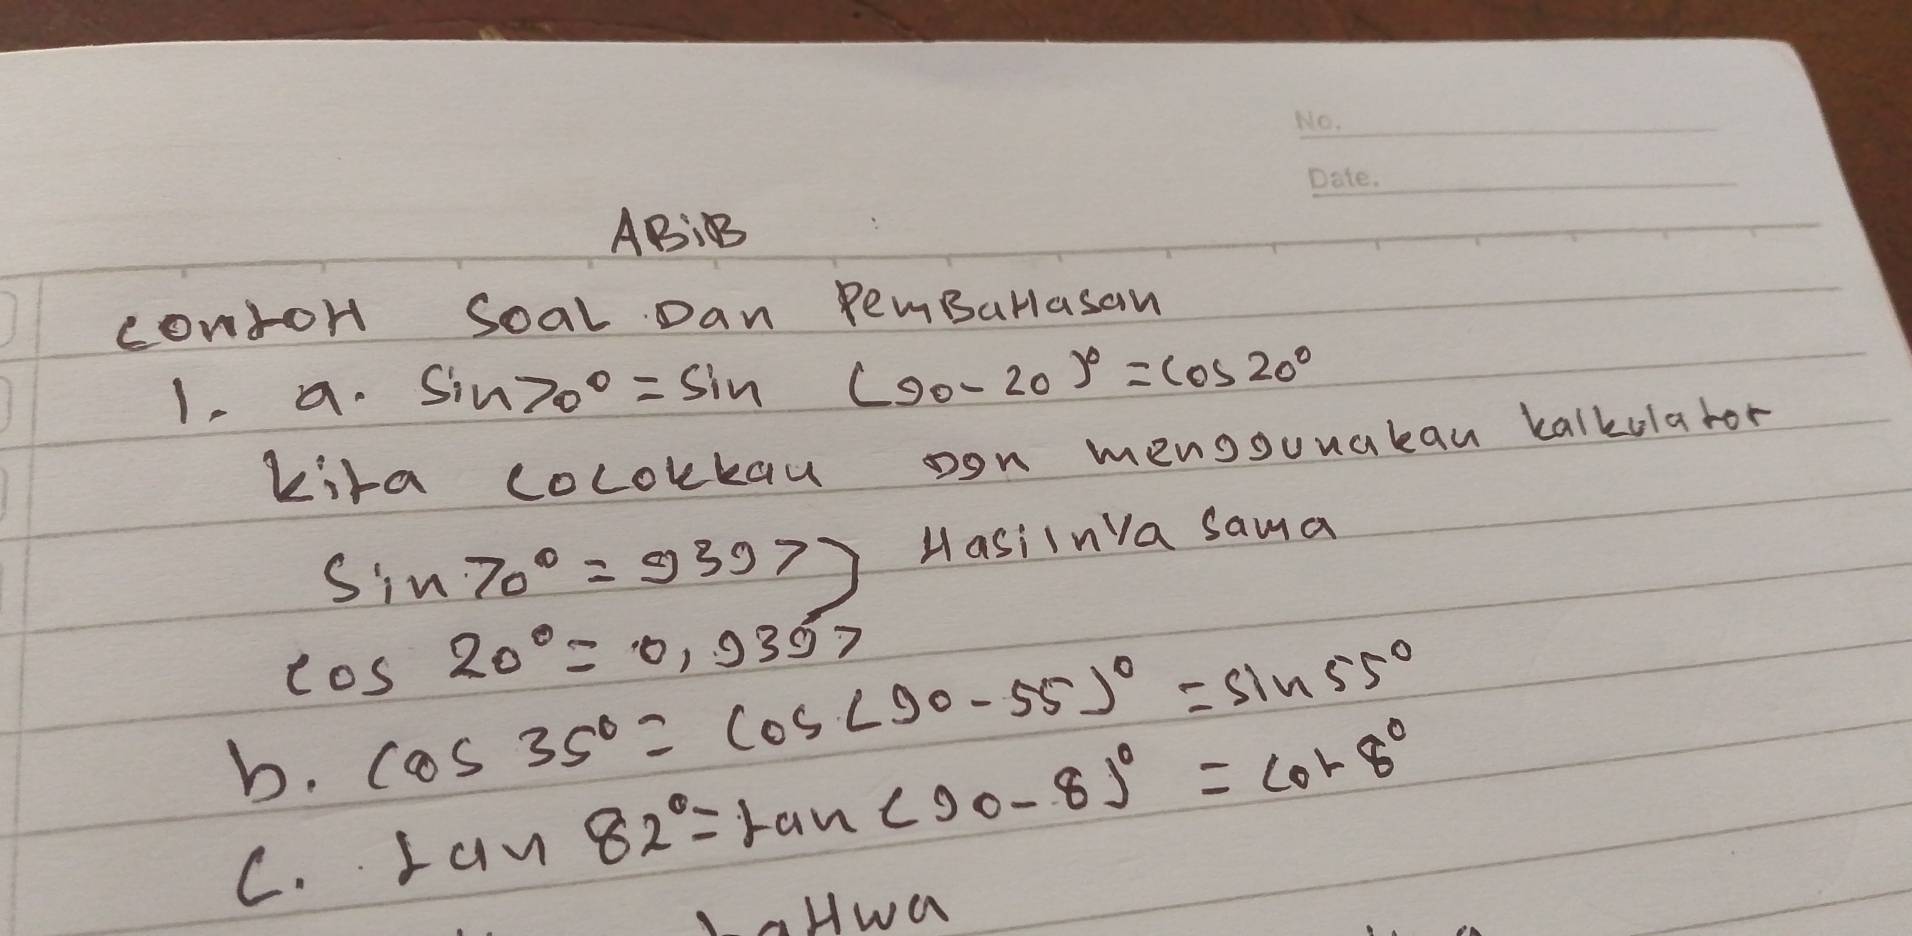 No.
Date.
ABiB
contoH Soal Dan PemBaHasan
1. a. Sin 70° = Sin (90-20)° = Cos 20°
kita cocokkan Dgn menggunakan kalkulator
Sin 70° = 9397 } Hasilnya sama
cos 20° = 0,9397
b. Cos 35° = Cos (90-55)° = sin 55°
C. tan 82° = tan (90-8)° = cot 8°
baHwa